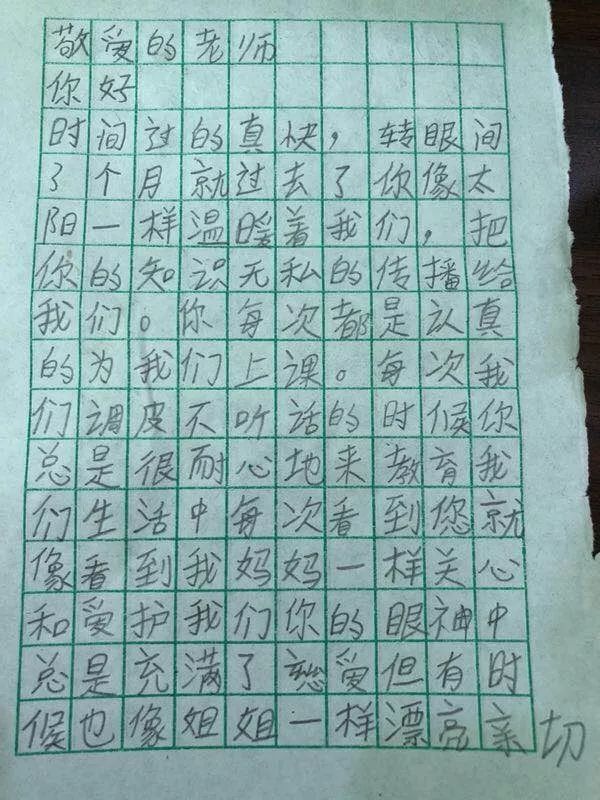 敬爱的老师
你好
时间过的真快，转眼间
3个月就过去了你像太
阳一样温暖着我们，把
你的知识无私的传播给
我们。你每次都是认真
的为我们上课。每次我
们调皮不听话的时候你
总是很耐心地来教育我
们生活中每次看到您就
像看到我妈妈一样关心
和爱护我们你的眼神中
总是充满了慈爱但有时
候也像姐姐一样漂亮亲切